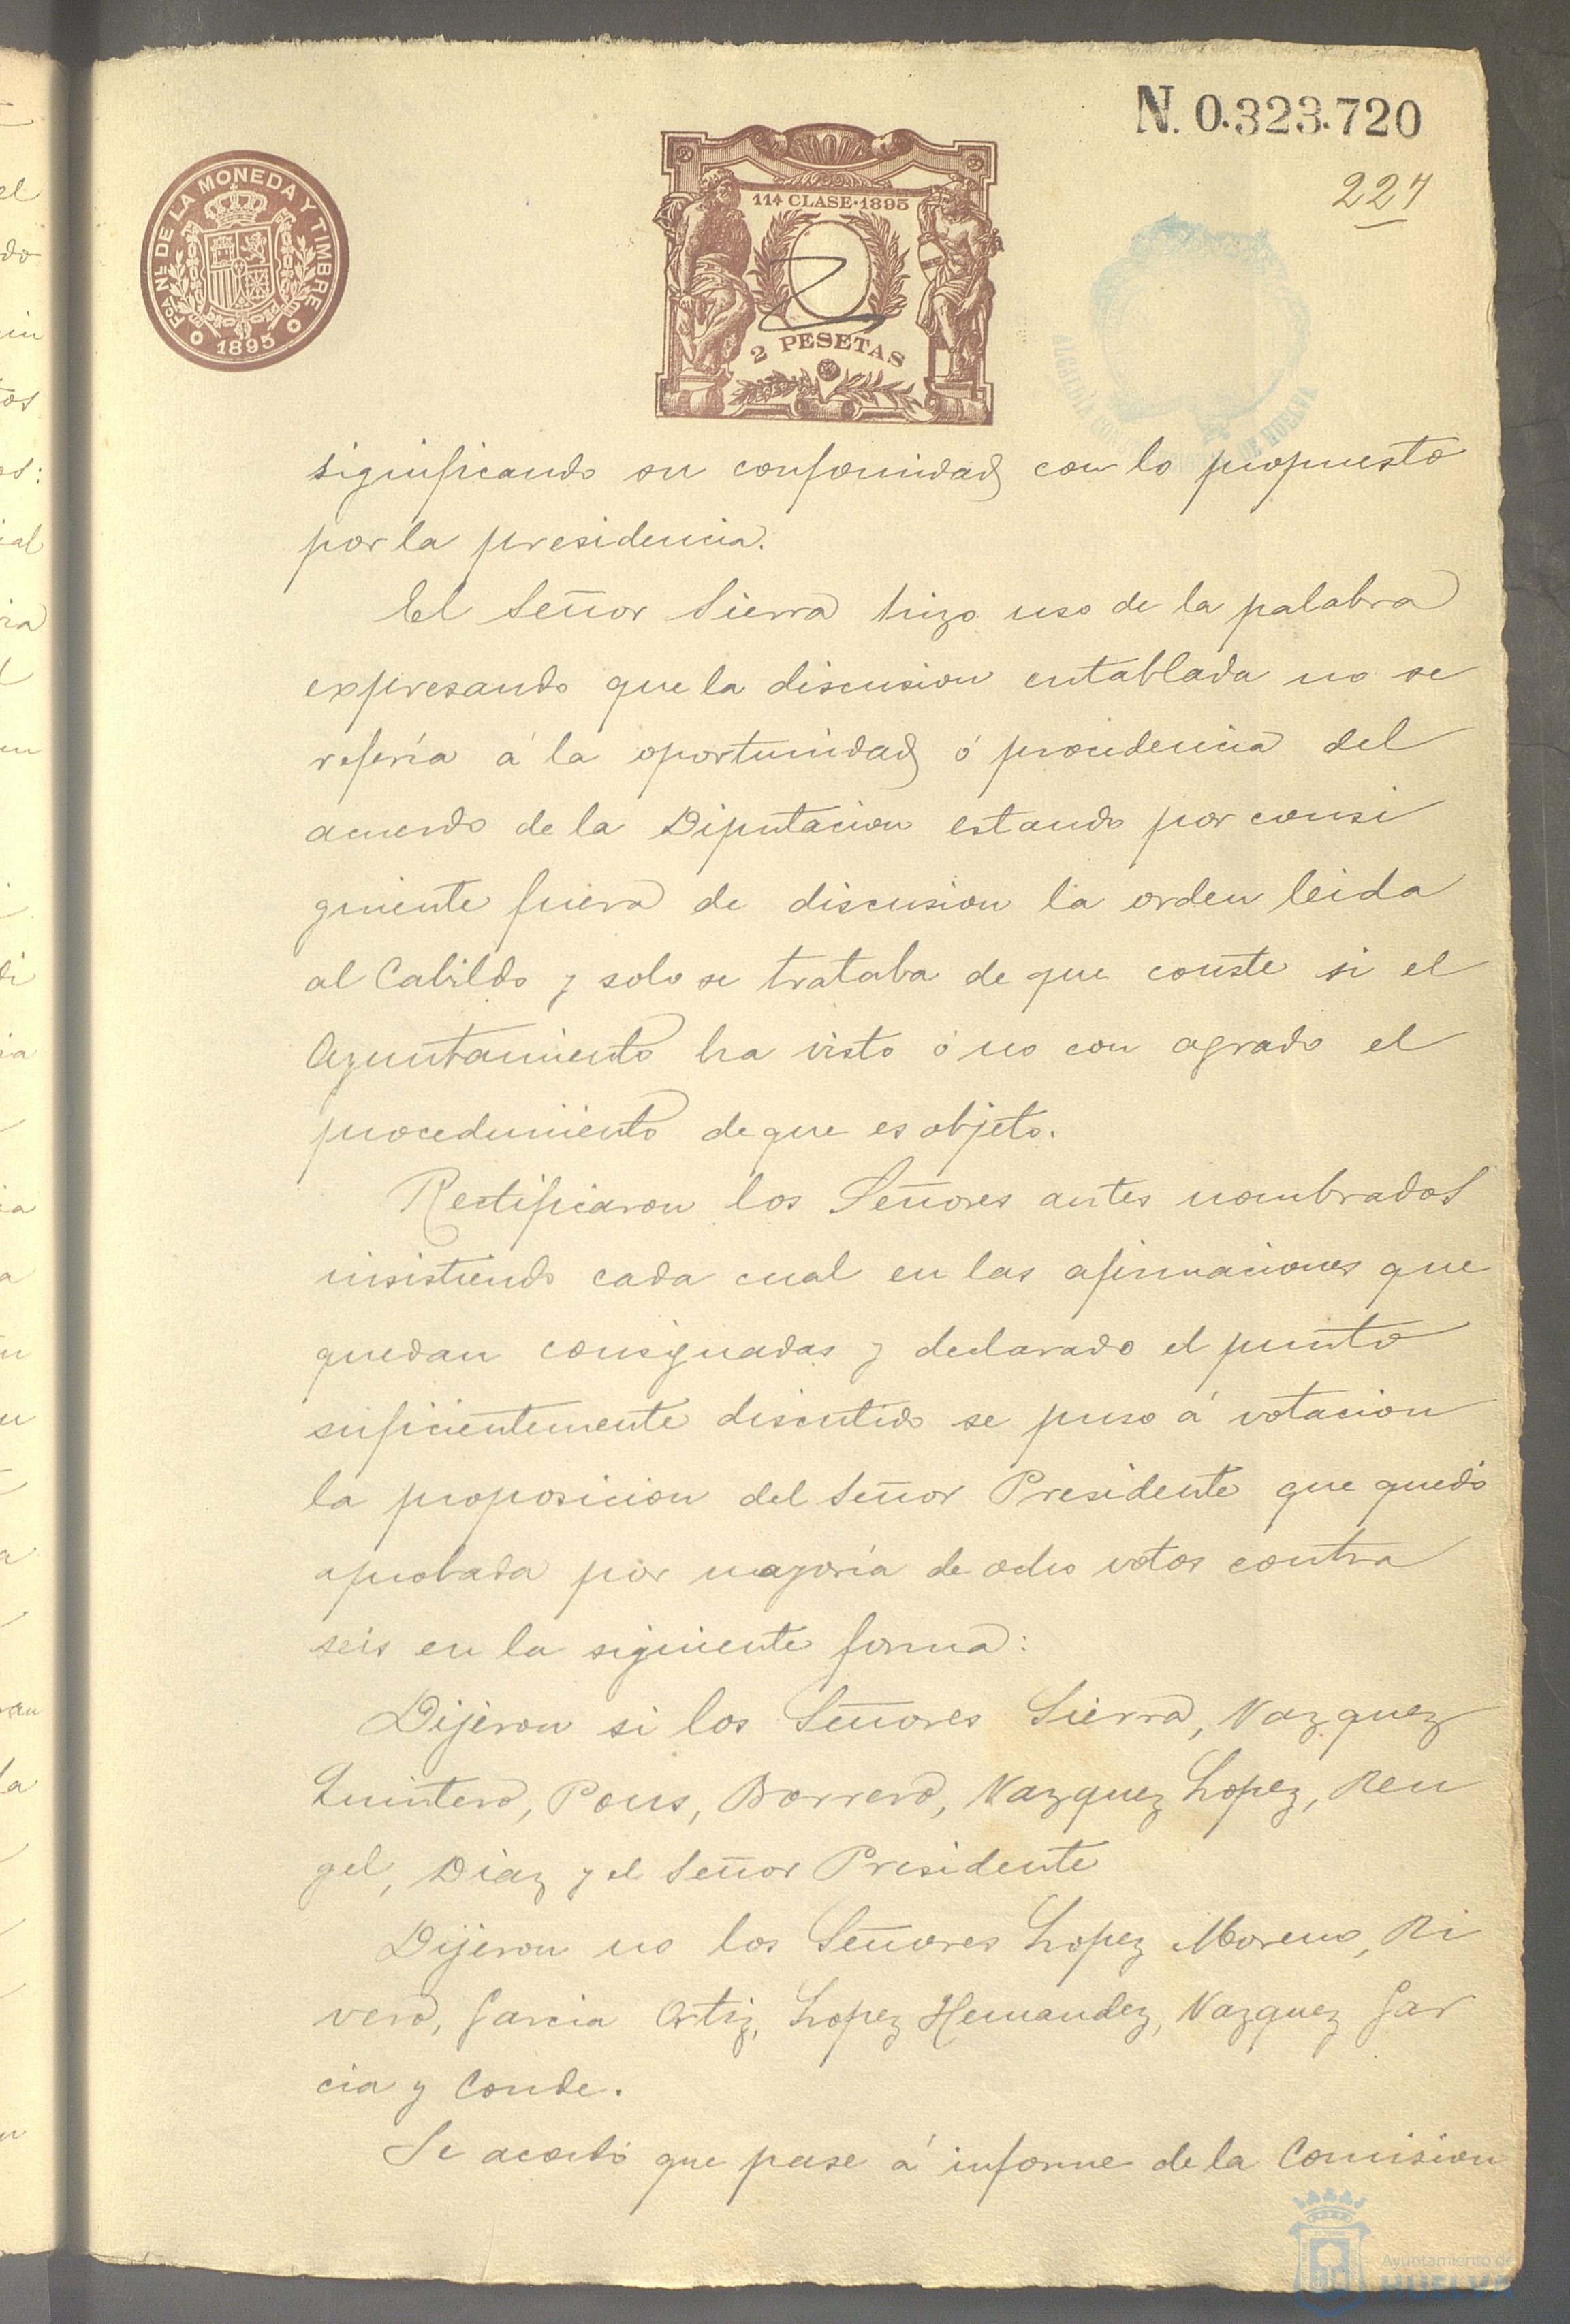 N. 0.323.720
227
Fca. Nl. DE LA MONEDA Y TIMBRE
1895
11ª CLASE·1895
2 PESETAS
ALCALDÍA CONSTITUCIONAL DE HUELVA
significando su conformidad con lo propuesto
por la presidencia.
El Señor Sierra hizo uso de la palabra
expresando que la discusion entablada no se
refería á la oportunidad ó procedencia del
acuerdo de la Diputacion estando por consi
guiente fuera de discusion la orden leida
al Cabildo y solo se trataba de que conste si el
Ayuntamiento ha visto ó no con agrado el
procedimiento de que es objeto.
Rectificaron los Señores antes nombrados
insistiendo cada cual en las afirmaciones que
quedan consignadas y declarado el punto
suficientemente discutido se puso á votacion
la proposicion del Señor Presidente que quedó
aprobada por mayoría de ocho votos contra
seis en la siguiente forma:
Dijeron si los Señores Sierra, Vazquez
Quintero, Pons, Borrero, Vazquez Lopez, Ren
gel, Diaz y el Señor Presidente
Dijeron no los Señores Lopez Moreno, Ri
vero, Garcia Ortiz, Lopez Hernandez, Vazquez Gar
cia y Conde.
Se acordó que pase á informe de la Comision
Ayuntamiento de
HUELVA